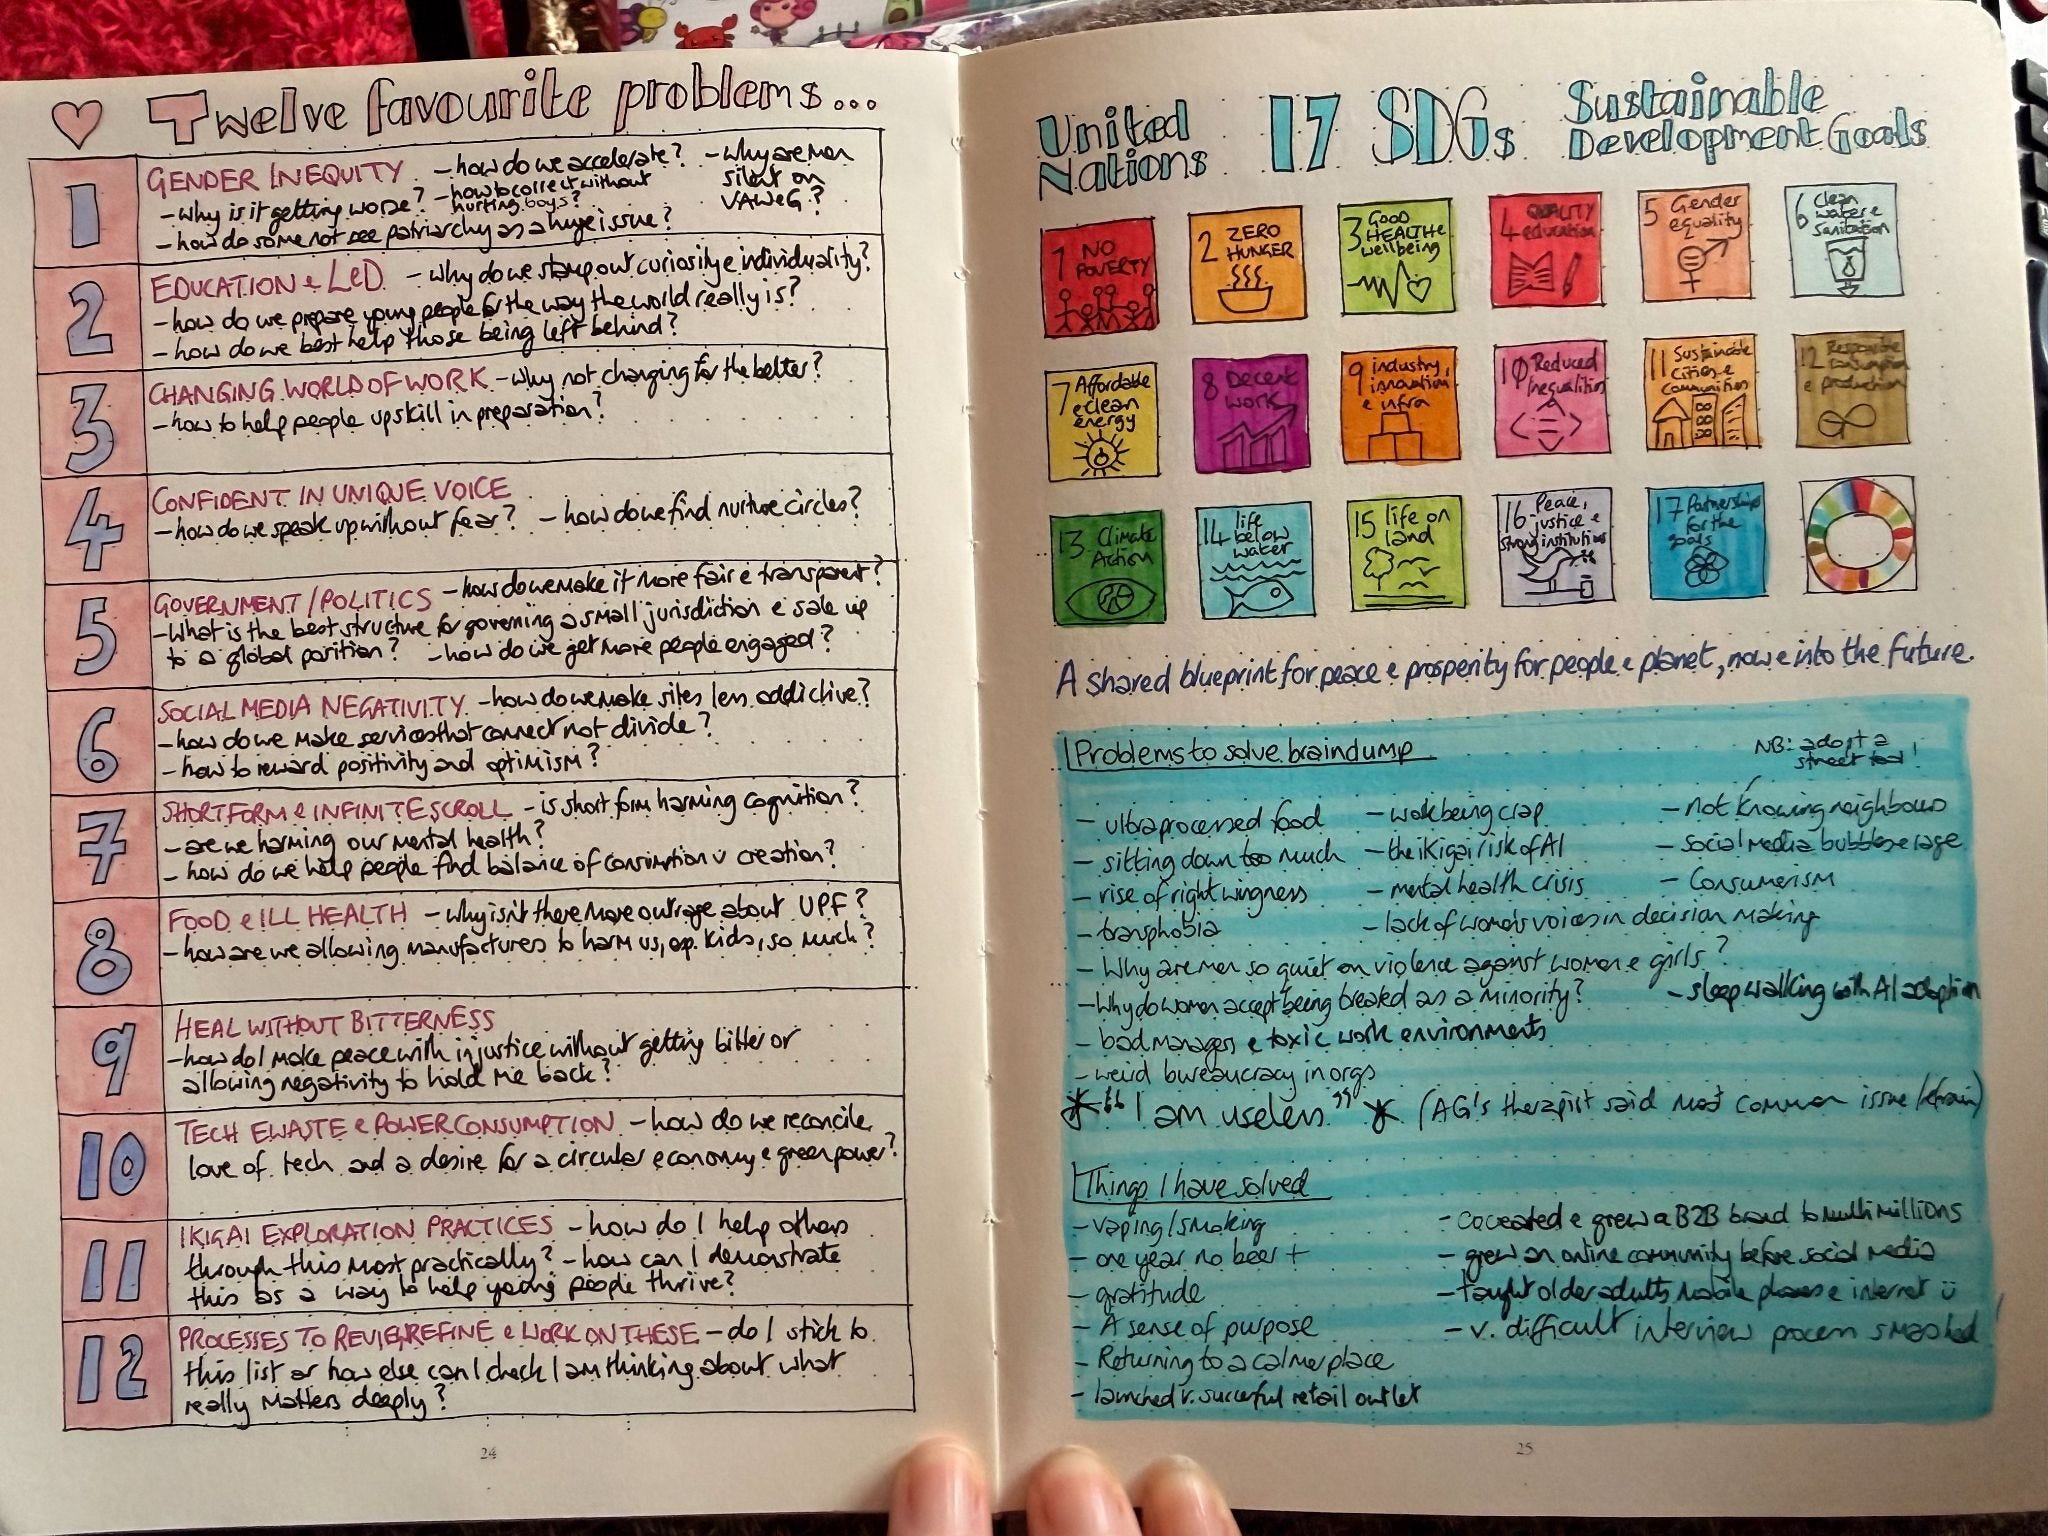 Twelve favourite problems...
1
GENDER INEQUITY - how do we accelerate? - why are men
- why is it getting worse? - how to correct without silent on
hurting boys? VAW&G?
- how do some not see patriarchy as a huge issue?
2
EDUCATION & L&D - why do we stamp out curiosity & individuality?
- how do we prepare young people for the way the world really is?
- how do we best help those being left behind?
3
CHANGING WORLD OF WORK - why not changing for the better?
- how to help people upskill in preparation?
4
CONFIDENT IN UNIQUE VOICE
- how do we speak up without fear? - how do we find nurture circles?
5
GOVERNMENT / POLITICS - how do we make it more fair & transparent?
- What is the best structure for governing a small jurisdiction & scale up
to a global position? - how do we get more people engaged?
6
SOCIAL MEDIA NEGATIVITY - how do we make sites less addictive?
- how do we make services that connect not divide?
- how to reward positivity and optimism?
7
SHORT FORM & INFINITE SCROLL - is short form harming cognition?
- are we harming our mental health?
- how do we help people find balance of consumption v creation?
8
FOOD & ILL HEALTH - why isn't there more outrage about UPF?
- how are we allowing manufacturers to harm us, esp. kids, so much?
9
HEAL WITHOUT BITTERNESS
- how do I make peace with injustice without getting bitter or
allowing negativity to hold me back?
10
TECH EWASTE & POWER CONSUMPTION - how do we reconcile
love of tech and a desire for a circular economy & green power?
11
IKIGAI EXPLORATION PRACTICES - how do I help others
through this most practically? - how can I demonstrate
this as a way to help young people thrive?
12
PROCESSES TO REVIEW, REFINE & WORK ON THESE - do I stick to
this list or how else can I check I am thinking about what
really matters deeply?
24
United Nations 17 SDGs Sustainable Development Goals
1 NO POVERTY
2 ZERO HUNGER
3 Good HEALTH & wellbeing
4 QUALITY education
5 Gender equality
6 Clean water & sanitation
7 Affordable & clean energy
8 Decent work
9 industry, innovation & infra
10 Reduced inequalities
11 Sustainable cities & communities
12 Responsible consumption & production
13 Climate Action
14 life below water
15 life on land
16 Peace, justice & strong institutions
17 Partnerships for the goals
A shared blueprint for peace & prosperity for people & planet, now & into the future.
Problems to solve braindump
NB: adopt a
street too!
- ultraprocessed food - work being crap - not knowing neighbours
- sitting down too much - the ikigai risk of AI - social media bubbles & rage
- rise of right wingness - mental health crisis - Consumerism
- transphobia - lack of women's voices in decision making
- Why are men so quiet on violence against women & girls?
- Why do women accept being treated as a minority? - sleep walking with AI adoption
- bad managers & toxic work environments
- weird bureaucracy in orgs
* "I am useless" * (AG's therapist said most common issue/refrain)
Things I have solved
- vaping/smoking - cocreated & grew a B2B brand to multi millions
- one year no beer + - grew an online community before social media
- gratitude - taught older adults mobile phones & internet ü
- A sense of purpose - v. difficult interview process smashed!
- Returning to a calmer place
- launched v. successful retail outlet
25